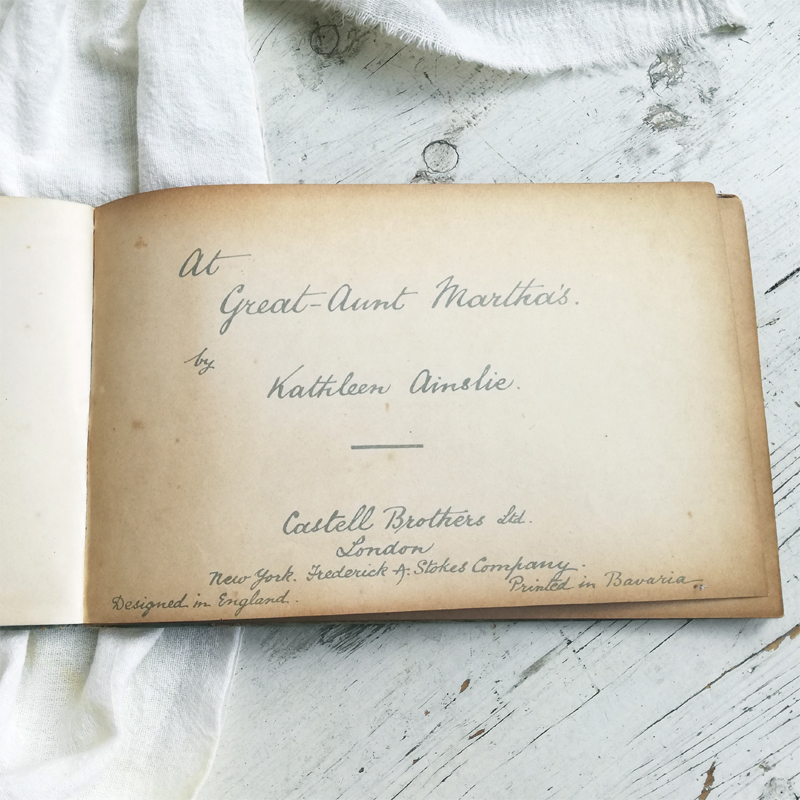 At
Great-Aunt Martha's.
by
Kathleen Ainslie.
Castell Brothers Ltd.
London
New York. Frederick A. Stokes Company.
Printed in Bavaria
Designed in England.